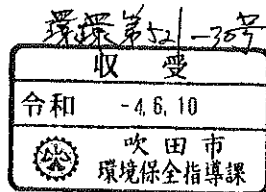 環環第521-30号
収受
令和 -4.6.10
吹田市
環境保全指導課